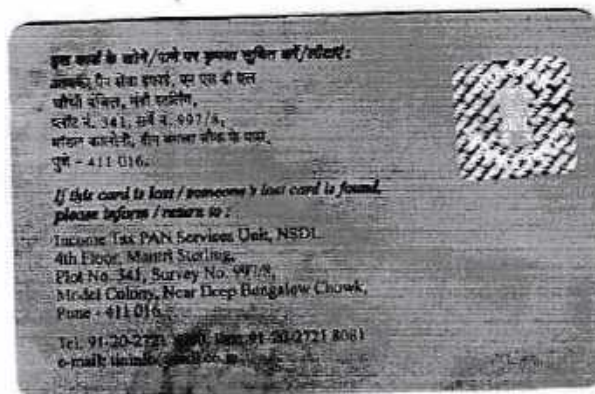 इस कार्ड के खोने/पाने पर कृपया सूचित करें/लौटाएं :
आयकर पैन सेवा इकाई, एन एस डी एल
चौथी मंजिल, मंत्री स्टर्लिंग,
प्लॉट नं. 341, सर्वे नं. 997/8,
मॉडल कालोनी, दीप बंगला चौक के पास,
पुणे - 411 016.
If this card is lost / someone's lost card is found,
please inform / return to :
Income Tax PAN Services Unit, NSDL
4th Floor, Mantri Sterling,
Plot No. 341, Survey No. 997/8,
Model Colony, Near Deep Bungalow Chowk,
Pune - 411 016.
Tel: 91-20-2721 Fax: 91-20-2721 8081
e-mail: